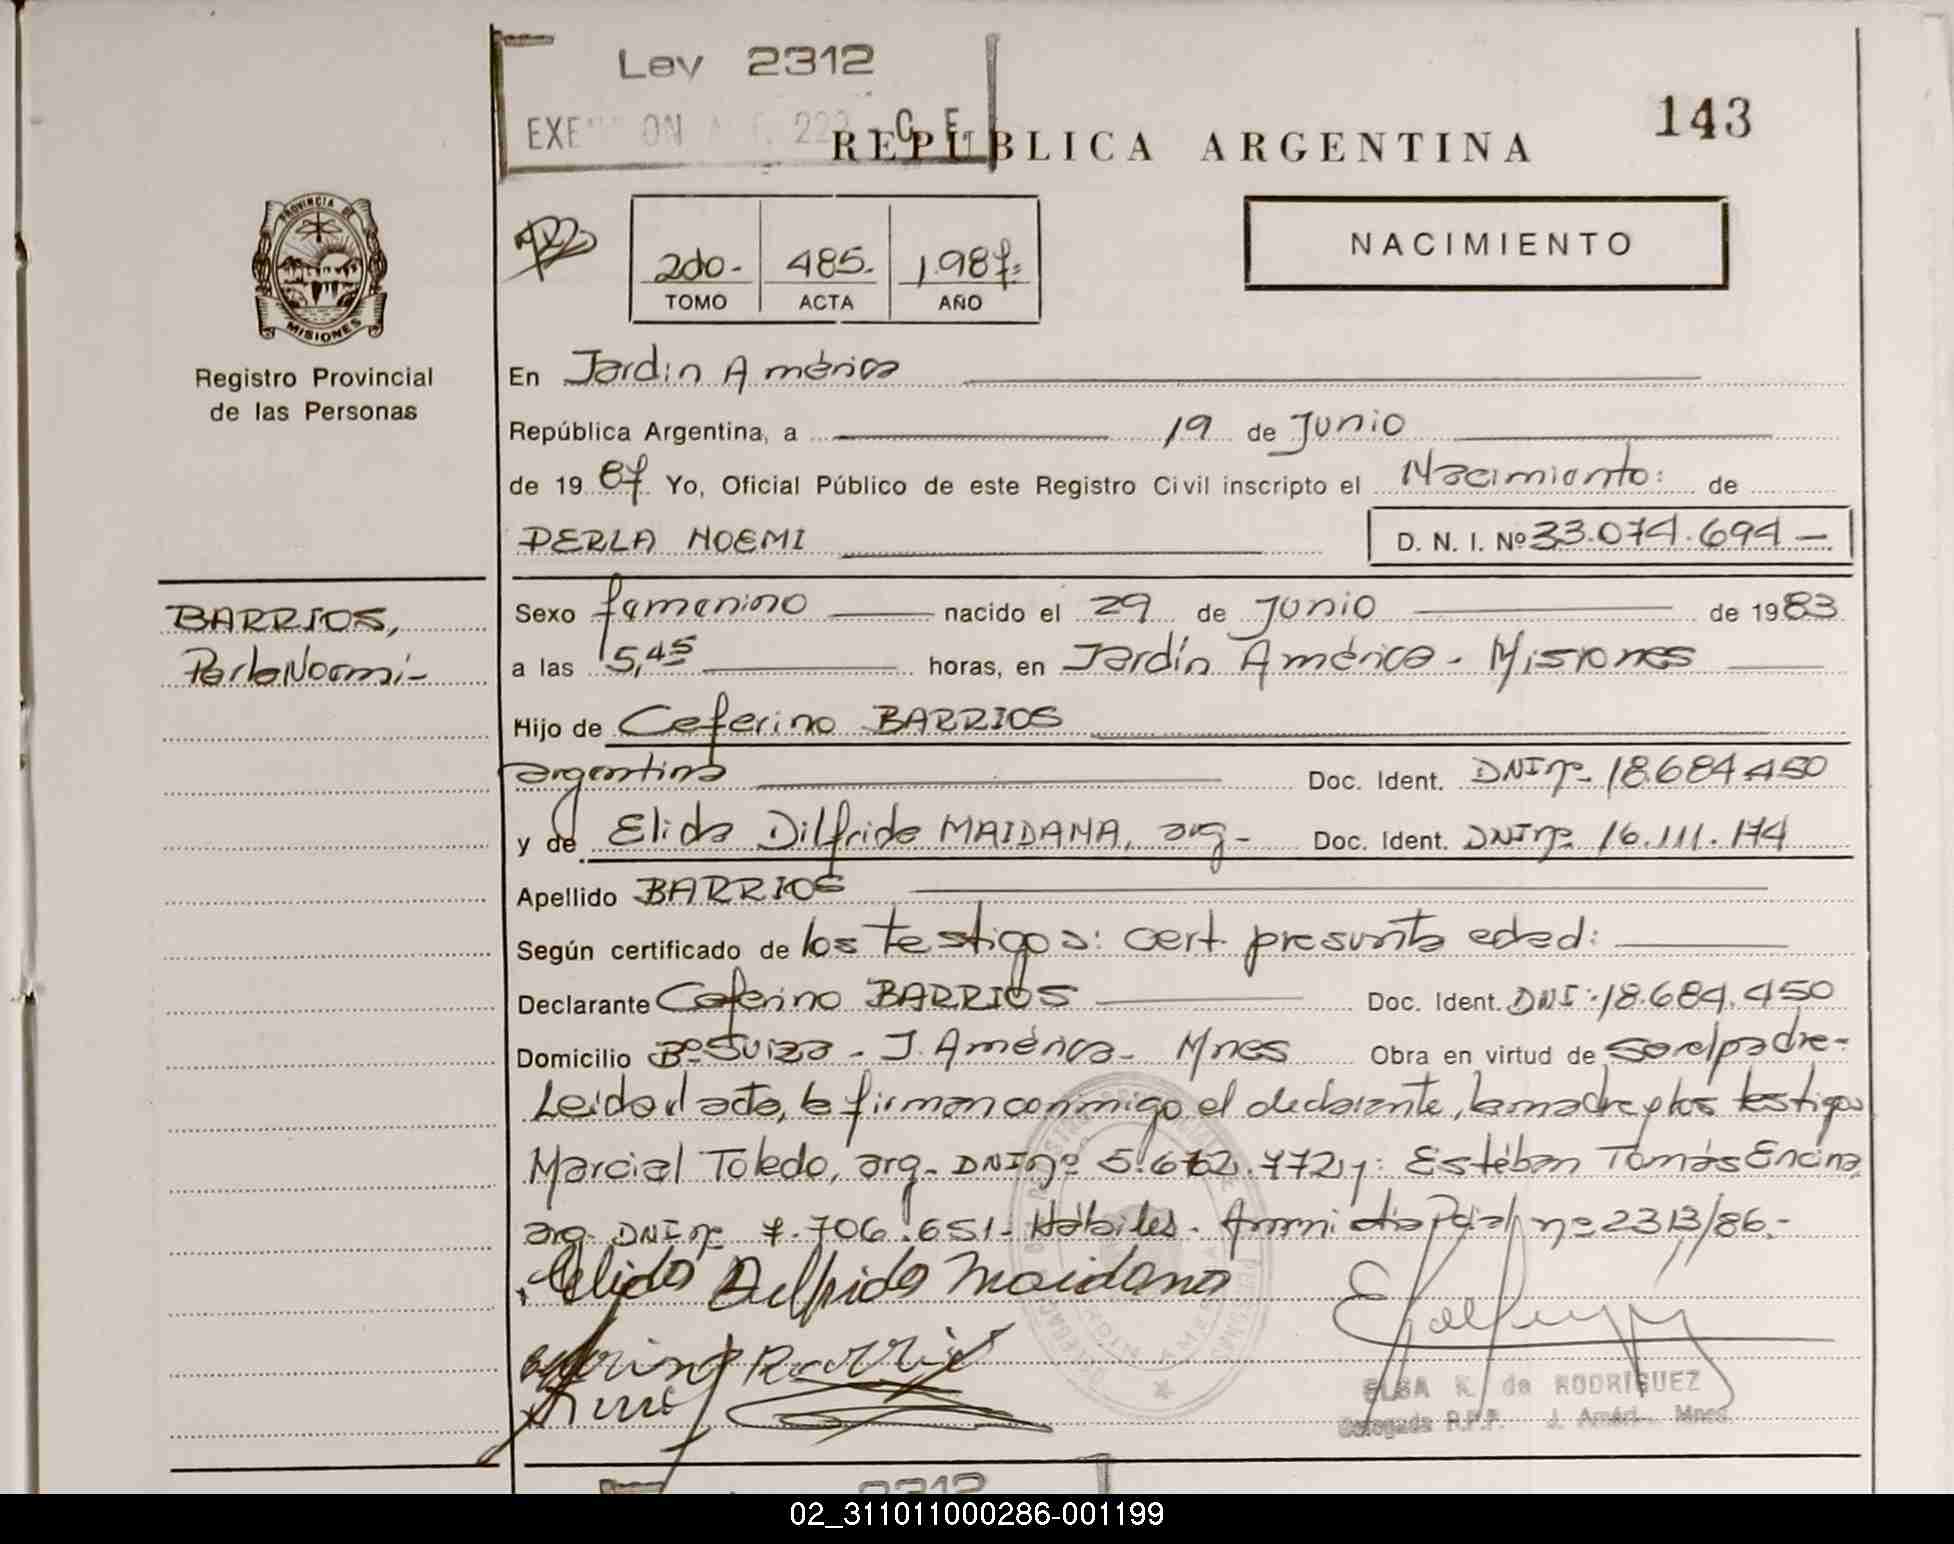 Ley 2312
143
REPUBLICA ARGENTINA
PROVINCIA DE
MISIONES
Registro Provincial
de las Personas
2do.-
485.-
1.987.=
TOMO
ACTA
AÑO
NACIMIENTO
En Jardín América
República Argentina, a 19 de Junio
de 1987 Yo, Oficial Público de este Registro Civil inscripto el Nacimiento: de
PERLA NOEMI
D. N. I. Nº 33.074.694 —
BARRIOS,
Perla Noemi-
Sexo femenino nacido el 29 de Junio de 1983
a las 15,45 horas, en Jardín América - Misiones
Hijo de Ceferino BARRIOS
argentino Doc. Ident. DNI nº 18.684.450
y de Elida Dilfrida MAIDANA, arg- Doc. Ident. DNI nº 16.111.174
Apellido BARRIOS
Según certificado de los testigos: cert. presunta edad:
Declarante Ceferino BARRIOS Doc. Ident. DNI: 18.684.450
Domicilio Bº Suiza - J. América - Mnes Obra en virtud de ser el padre-
Leida el acta, la firman conmigo el declarante, la madre y los testigos
Marcial Toledo, arg- DNI nº 5.672.772 y: Estéban Tomás Encina
arg- DNI nº 7.706.651- Hábiles - Amnistia Pcial nº 2313/86.-
Elida Delfrida Maidana
Barrios
ELSA K. de RODRIGUEZ
Delegada R.P.P. J. Amér. Mnes.
2312
02_311011000286-001199